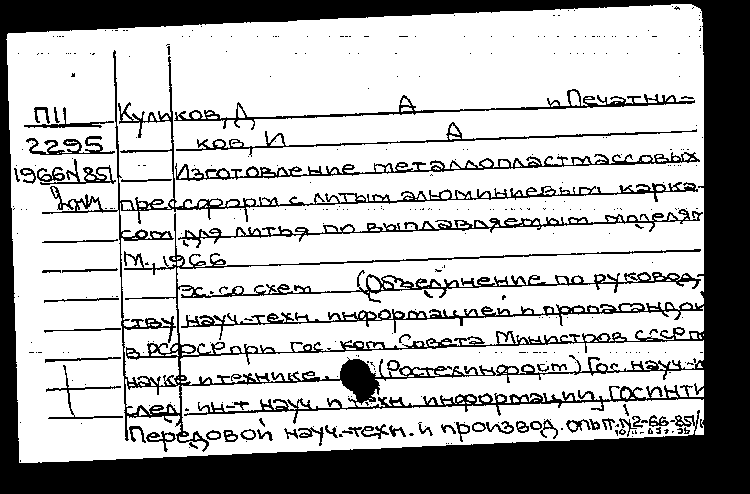 П11 Куликов, Д А и Печатни-
2295 ков, И А
1966№851 Изготовление металлопластмассовых
прессформ с литым алюминиевым карка-
сом для литья по выплавляемым моделям
М., 1966
3с. со схем (Объединение по руковод-
ству науч.-техн. информацией и пропагандой
в РСФСР при Гос. ком. Совета Министров СССР по
науке и технике (Ростехинформ) Гос. науч.-и
след. ин-т науч. и техн. информации, ГОСИНТИ
Передовой науч.-техн. и производ. опыт. №2-66-851/